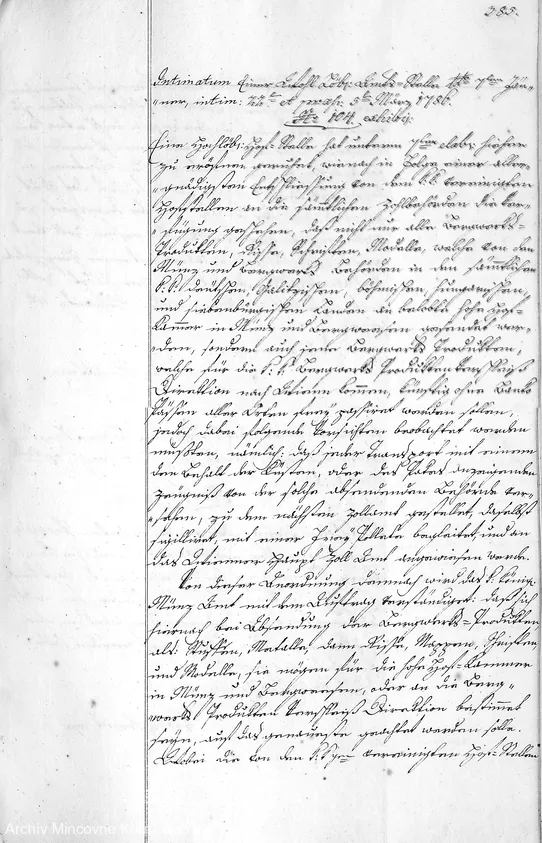 285.
Intimatum Einer Löbl: Amts-Stelle
ner, intim: et praes: 5ten März 1786.
Nro 104. exhib:
Eine Hochlöbl: Hof-Stelle hat unterm elab: hieher
zu geruhet, wienach in Folge einer aller-
gnädigsten Entschliessung von den k. k. vereinigten
Hofstellen an die sämtlichen Zollbehörden die Ver-
fügung geschehen, daß nicht nur alle Bergwerks-
Produkten, Risse, Schriften, Modelle, welche von den
Münz und Bergwerks Behörden in den sämmtlichen
k: k: deutschen, Galizischen, böhmischen, hungarischen,
und siebenbürgischen Landen an hohe Hof-
Kammer in Münz und Bergwesen gesendet wer-
den, sondern auch jene Bergwerks Produkten,
welche für die k: k: Bergwerks Produkten Verschleiß
Direktion nach Wien kommen, künftig ohne
Pässen aller Orten frey passiret werden sollen,
jedoch dabei folgende Vorsichten beobachtet werden
müssten, nämlich: daß jeder Transport mit einem
den Behalt der Kisten, oder des Pakets anzeigenden
Zeugniß von der solche absendenden Behörde ver-
sehen, zu dem nächsten Zollamt gestellet, daselbst
sigilliret, mit einer Frey Pollete begleitet, und an
das Wiener Haupt Zoll Amt angewiesen werde.
Von dieser Anordnung demnach wird das k: königl:
Münz Amt mit dem Auftrag verständiget: daß sich
hiernach bei Absendung der Bergwerks-Produkten
als: Stuffen, Metalle, dann Risse, Mappen, Schriften,
und Modelle, sie mögen für die hohe Hof-Kammer
in Münz und Bergwesen, oder an die Berg-
werks Produkten Verschleiß Direktion bestimmt
seyn, auf das genaueste geachtet werden solle.
Wobei die von den vereinigten Hof-Stellen
Archiv Mincovne